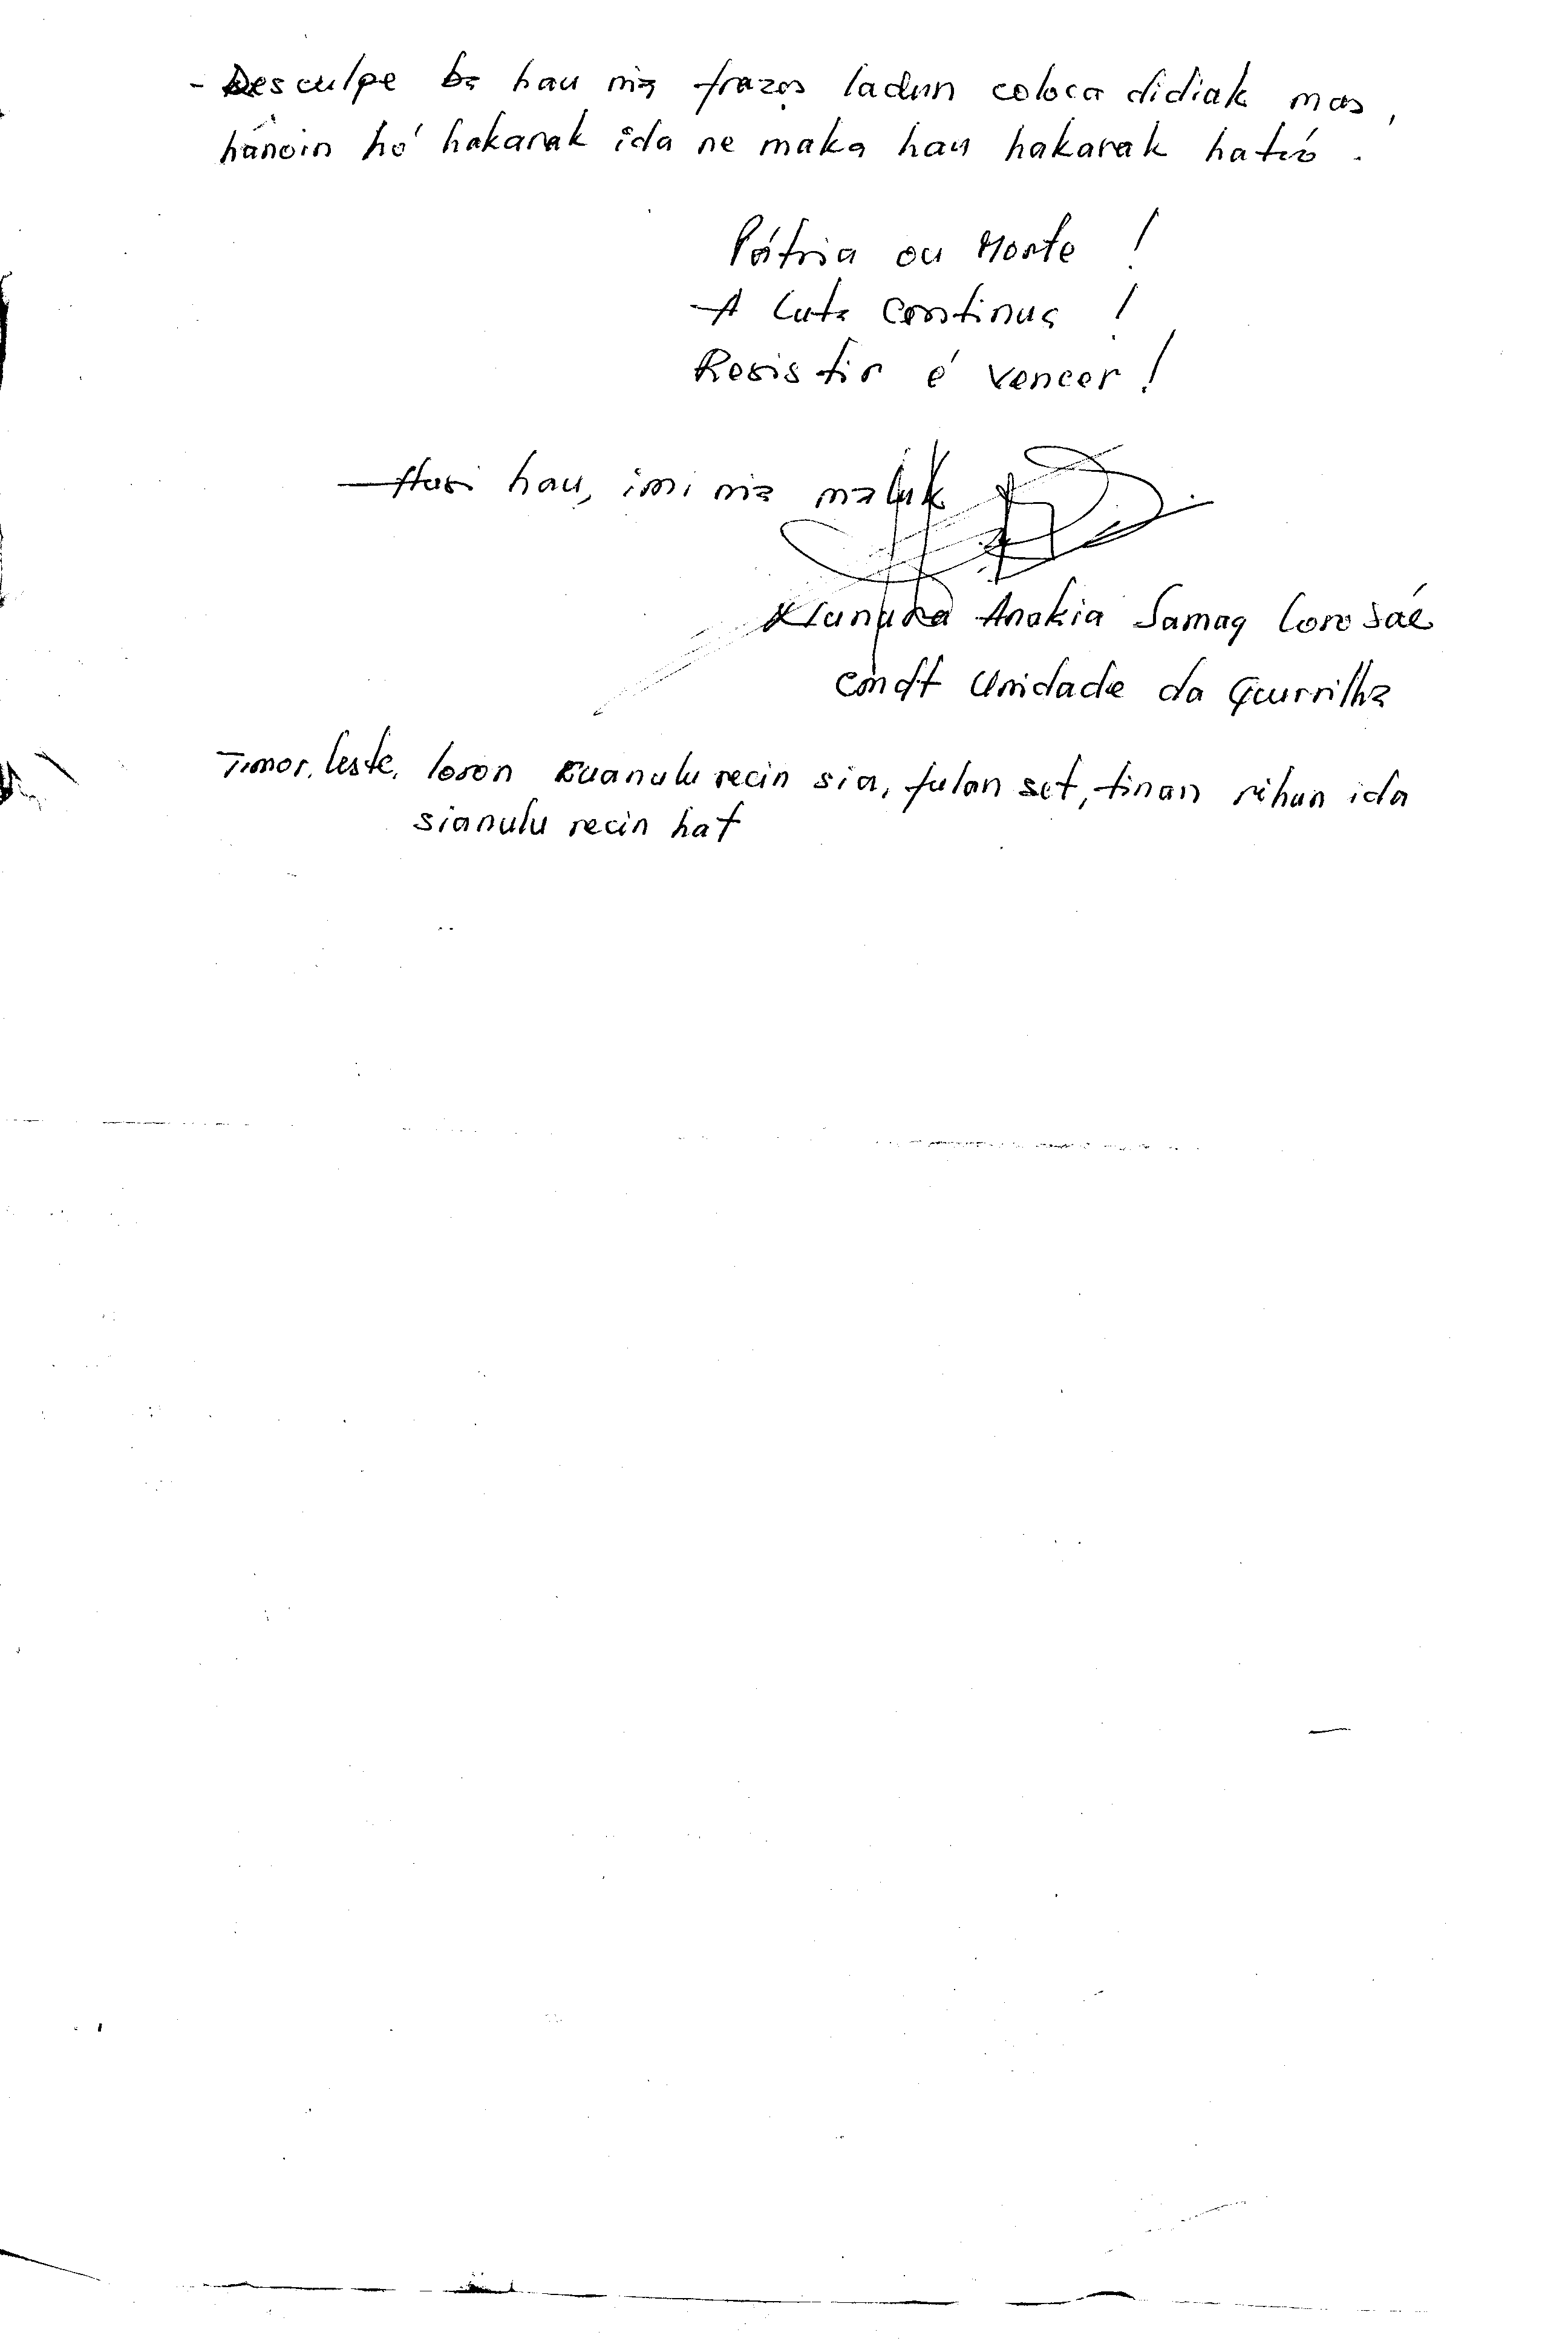 - Desculpe ba hau nia frazes ladun coloca didiak mas,
hánoin hó hakarak ida ne maka hau hakarak ható.
Pátria ou Morte !
A Luta Continua !
Resistir é vencer !
Husi hau, imi nia maluk
Anakia Samag Loro Sáe
Cmdt Unidade da Gurrilha
Timor, Leste, loron ruanulu recin sia, fulan set, tinan rihun ida
sianulu recin hat